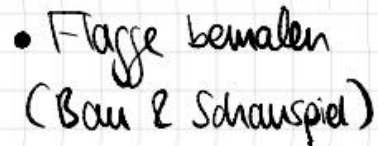 • Flagge bemalen
(Bau & Schauspiel)